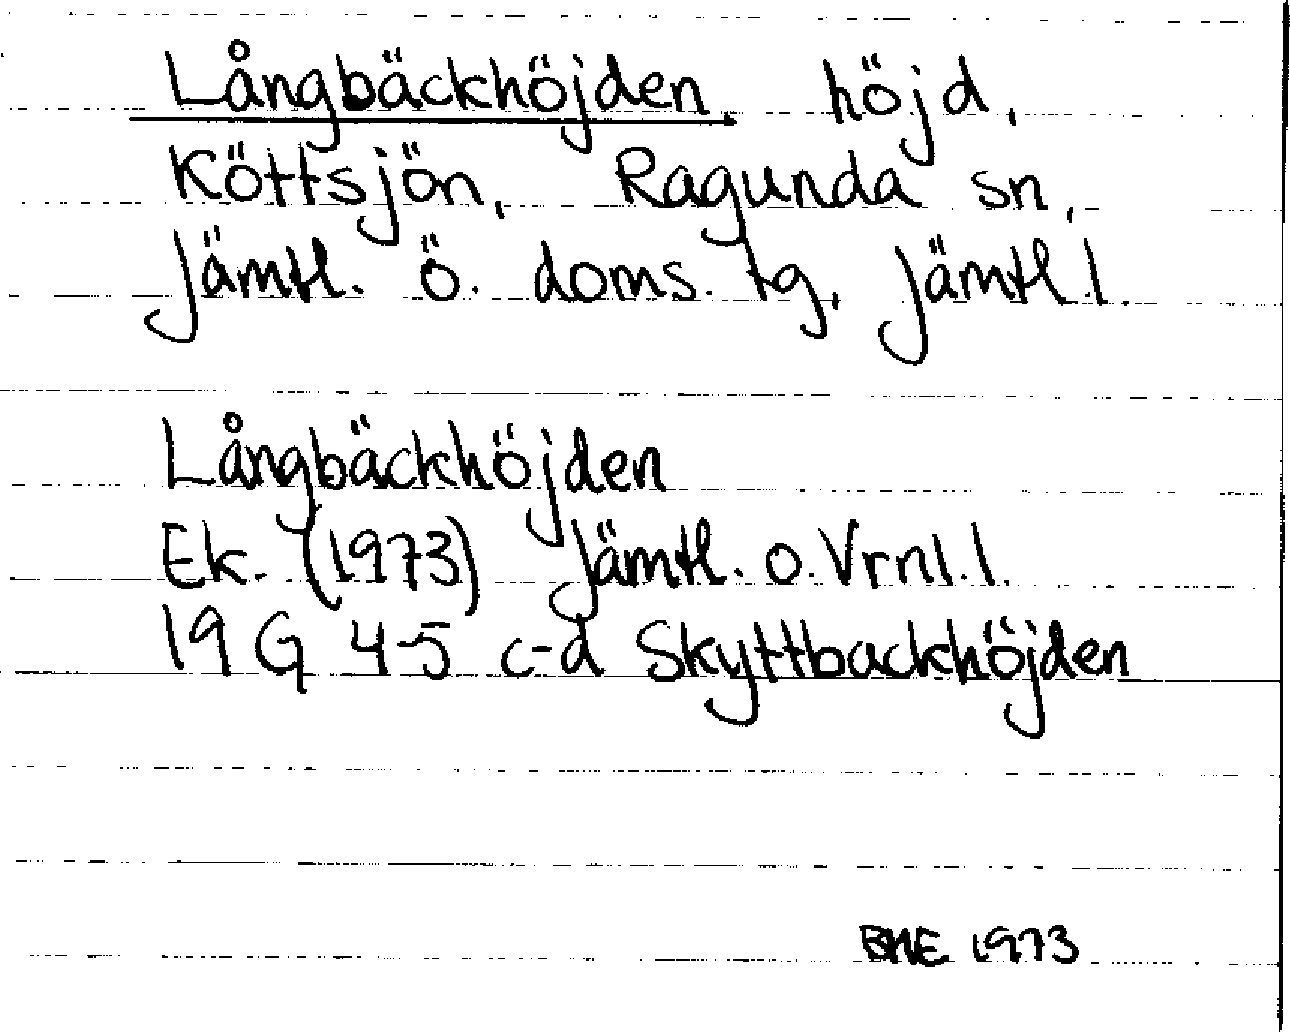 Långbäckhöjden höjd,
Köttsjön, Ragunda sn,
Jämtl. ö. doms. tg, Jämtl. l.
Långbäckhöjden
Ek. (1973) Jämtl. o. Vrnl. l.
19 G 4-5 c-d Skyttbackhöjden
BNE 1973